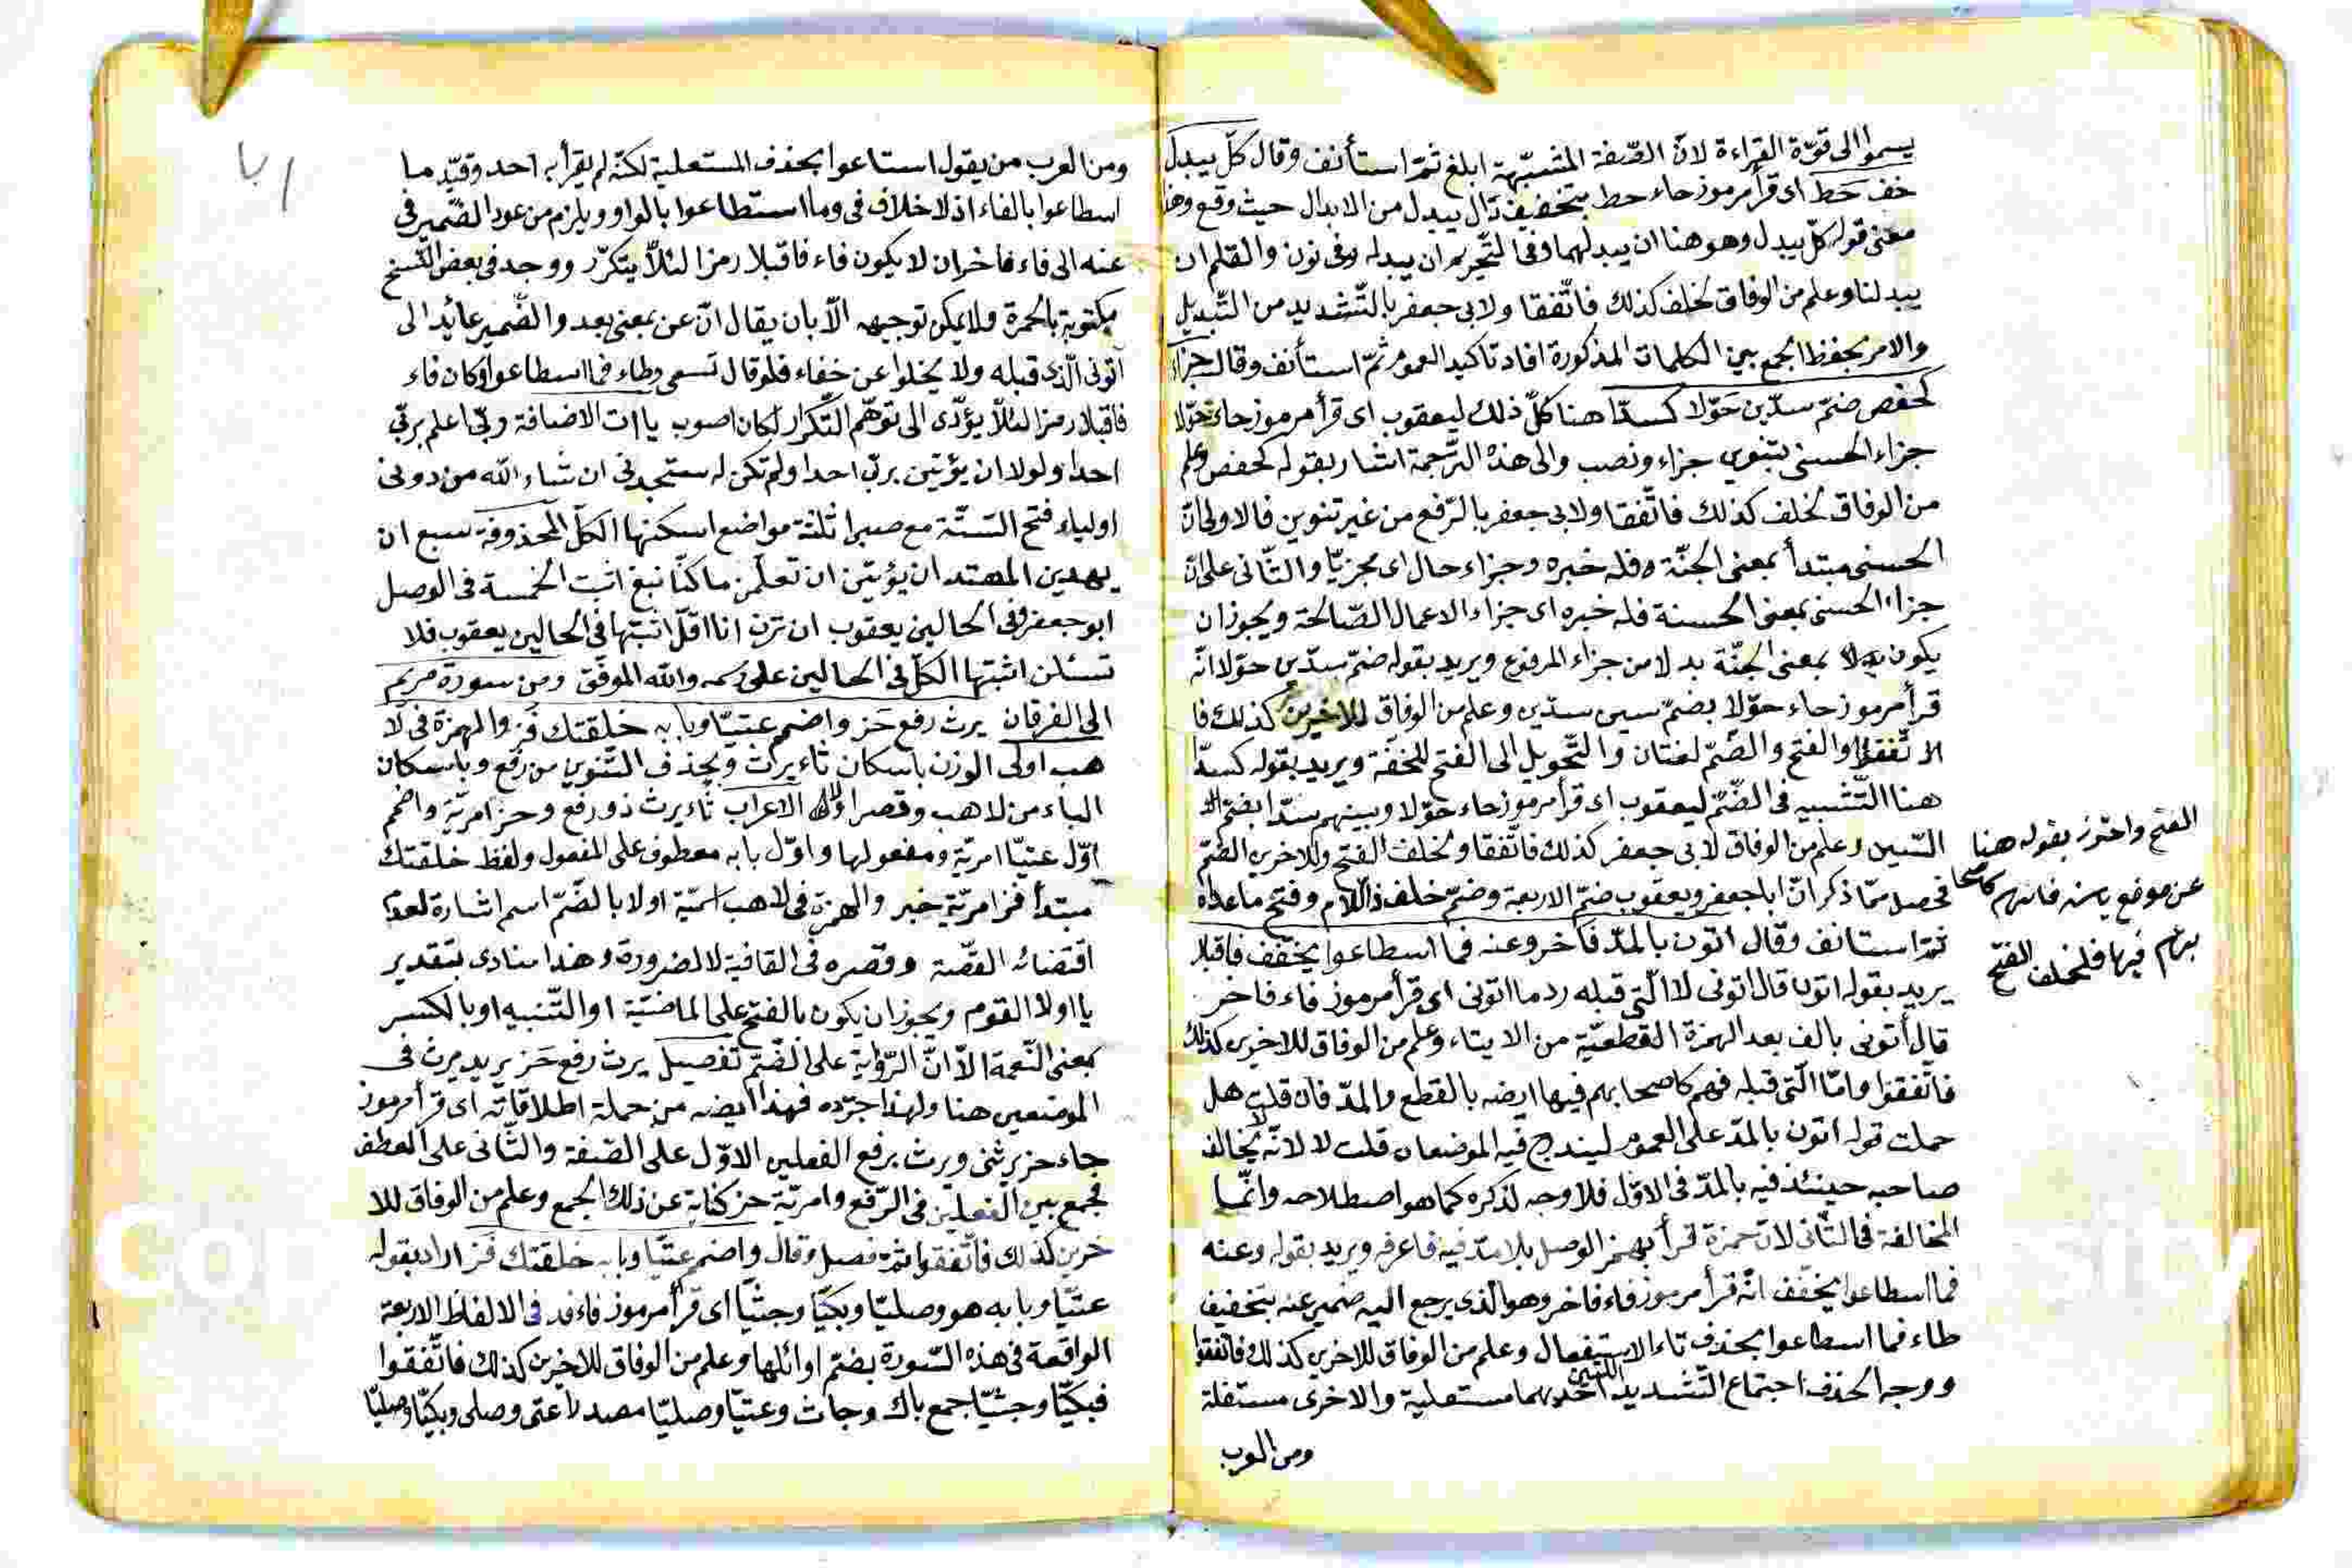 يسموا الى قوّة القراءة لانّ الصّفة المشبّهة ابلغ ثمّ استأنف وقال كلّ يبدل
خف حَط اى قرأ مرموز حاء حط بتخفيف دال يبدل من الابدال حيث وقع وهذا
معنى قوله كلّ يبدل وهو هنا ان يبدلهما وفى التّحريم ان يبدله وفى نون والقلم ان
يبدلنا وعلم من الوفاق لخلف كذلك فاتّفقا ولابى جعفر بالتّشديد من التّبديل
والامر بحفظ الجمع بين الكلمات المذكورة افاد تاكيد العموم ثمّ استأنف وقال جزاء
كحفص ضمّ سدّين حَوّلا كسدّا هنا كلّ ذلك ليعقوب اى قرأ مرموز حاء حوّلا
جزاء الحسنى بتنوين جزاء ونصب والى هذه التّرجمة اشار بقوله كحفص وعلم
من الوفاق لخلف كذلك فاتّفقا ولابى جعفر بالرّفع من غير تنوين فالاولى انّ
الحسنى مبتدأ بمعنى الجنّة وفله خبره وجزاء حال اى مجزيّا والثّانى على انّ
جزاء الحسنى بمعنى الحسنة فله خبره اى جزاء الاعمال الصّالحة ويجوز ان
يكون بمعنى الجنّة بدلا من جزاء المرفوع ويريد بقوله ضمّ سدّين حوّلا انّه
قرأ مرموز حاء حوّلا بضمّ سين سدّين وعلم من الوفاق للاخرين كذلك فا
لاتّفقوا والفتح والضّمّ لغتان والتّحويل الى الفتح للخفّة ويريد بقوله كسدّا
هنا التّشبيه فى الضّمّ ليعقوب اى قرأ مرموز حاء حوّلا وبينهم سدّا بضمّ
السّين وعلم من الوفاق لابى جعفر كذلك فاتّفقا ولخلف الفتح وللاخرين الضّمّ
فحصل ممّا ذكر انّ ابا جعفر ويعقوب ضمّ الاربعة وضمّ خلف ذا اللّام وفتح ماعداه
الفتح واحترز بقوله هنا
عن موضع يٰسن فانهم كاصحا
بهم فيها فلخلف الفتح
ثمّ استانف وقال اتون بالمدّ فاخر وعنه فما اسطاعوا يخفّف فاقبلا
يريد بقوله اتون قال اتونى لا الّتى قبله ردما اتونى اى قرأ مرموز فاء فاخر
قال أتونى بالف بعد الهمزة القطعيّة من الايتاء وعلم من الوفاق للاخرين كذلك
فاتّفقوا وامّا الّتى قبله فهم كاصحابهم فيها ايضه بالقطع والمدّ فان قلت هل
حملت قوله اتون بالمدّ على العموم ليندرج فيه الموضعان قلت لا لانّه لا يخالف
صاحبه حينئذ فيه بالمدّ فى الاوّل فلا وجه لذكره كما هو اصطلاحه وانّما
المخالفة فى الثّانى لانّ حمزة قرأ بهمز الوصل بلا مدّ فيه فاعرفه ويريد بقوله وعنه
فما اسطاعوا يخفّف انّه قرأ مرموز فاء فاخر وهو الّذى يرجع اليه ضمير عنه بتخفيف
طاء فما اسطاعوا بحذف تاء الاستفعال وعلم من الوفاق للاخرين كذلك فاتّفقوا
ووجه الحذف اجتماع التّشديد احديهما مستعلية والاخرى مستفلة
ومن العرب
ومن العرب من يقول استاعوا بحذف المستعلية لكنّه لم يقرأ به احد وقيّد ما
اسطاعوا بالفاء اذ لا خلاف فى وما استطاعوا بالواو ويلزم من عود الضّمير فى
عنه الى فاء فاخر ان لا يكون فاء فاقبلا رمزا لئلّا يتكرّر ووجد فى بعض النّسخ
مكتوبة بالحمرة ولا يمكن توجيهه الّا بان يقال انّ عن بمعنى بعد والضّمير عائد الى
آتونى الّذى قبله ولا يخلوا عن خفاء فلو قال تسمى وطاء فما اسطاعوا وكان فاء
فاقبلا رمزا لئلّا يؤدّى الى توهّم التّكرار لكان اصوب ياات الاضافة ربّى اعلم بربّى
احدا ولولا ان يؤتين بربّى احدا ولم تكن له ستجدنى ان شاء الله من دونى
اولياء فتح السّتّة مع صبرا ثلثة مواضع اسكنها الكلّ المحذوفة سبع ان
يهدين المهتد ان يؤتين ان تعلّمن ما كنّا نبغ اثبت الخمسة فى الوصل
ابو جعفر وفى الحالين يعقوب ان ترن انا اقلّ اثبتها فى الحالين يعقوب فلا
تسئلن اثبتها الكلّ فى الحالين على رسمه والله الموفّق ومن سورة مريم
الى الفرقان يرث رفع حَز واضمم عتيّا وبابه خلقتك فَز والهمزة فى لا
هب اولى الوزن باسكان ثاء يرث وبحذف التّنوين من رفع وباسكان
الباء من لاهب وقصر اولا الاعراب ثاء يرث ذو رفع وحز امريّة واضمم
اوّل عتيّا امريّة ومفعولها واوّل بابه معطوف على المفعول ولفظ خلقتك
مبتدأ فز امريّة خبر والهمزة فى لاهب اسميّة اولا بالضّمّ اسم اشارة لعدم
اقتضائه القصّة وقصره فى القافية لا لضرورة وهذا منادى بتقدير
يا اولا القوم ويجوز ان يكون بالفتح على الماضيّة او التّنبيه او بالكسر
بمعنى النّعمة الّا انّ الرّواية على الضّمّ تفصيل يرث رفع حَز يريد يرث فى
الموضعين هنا ولهذا جرّده فهذا ايضه من جملة اطلاقاته اى قرأ مرموز
حاء حز يرثنى ويرث برفع الفعلين الاوّل على الصّفة والثّانى على العطف
فجمع بين الفعلين فى الرّفع وامريّة حز كناية عن ذلك الجمع وعلم من الوفاق للا
خرين كذلك فاتّفقوا ثمّ فصل وقال واضمم عتيّا وبابه خلقتك فَز اراد بقوله
عتيّا وبابه هو وصليّا وبكيّا وجثيّا اى قرأ مرموز فاء فد فى الالفاظ الاربعة
الواقعة فى هذه السّورة بضمّ اوائلها وعلم من الوفاق للاخرين كذلك فاتّفقوا
فبكيّا وجثيّا جمع باك وجاث وعتيّا وصليّا مصدرا عتى وصلى وبكيّا وصليّا